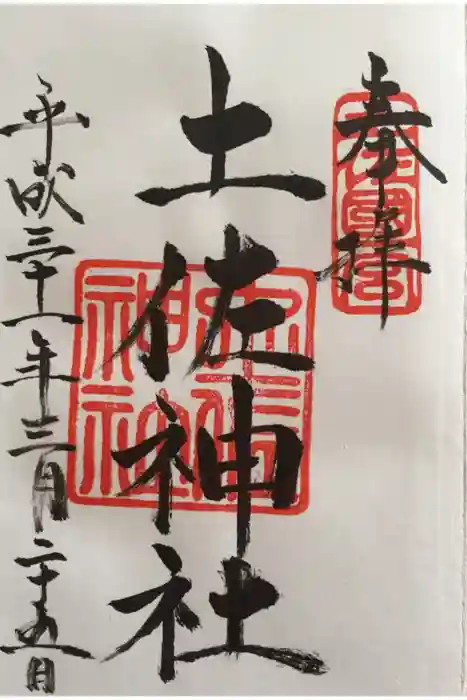 奉拝
土佐神社
平成三十一年三月二十五日
土佐神社